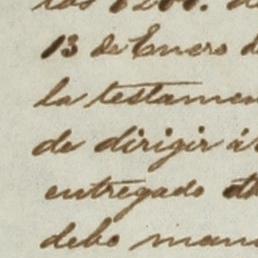 13 de Enero d
la testamen
de dirigir á
entregado
debo man